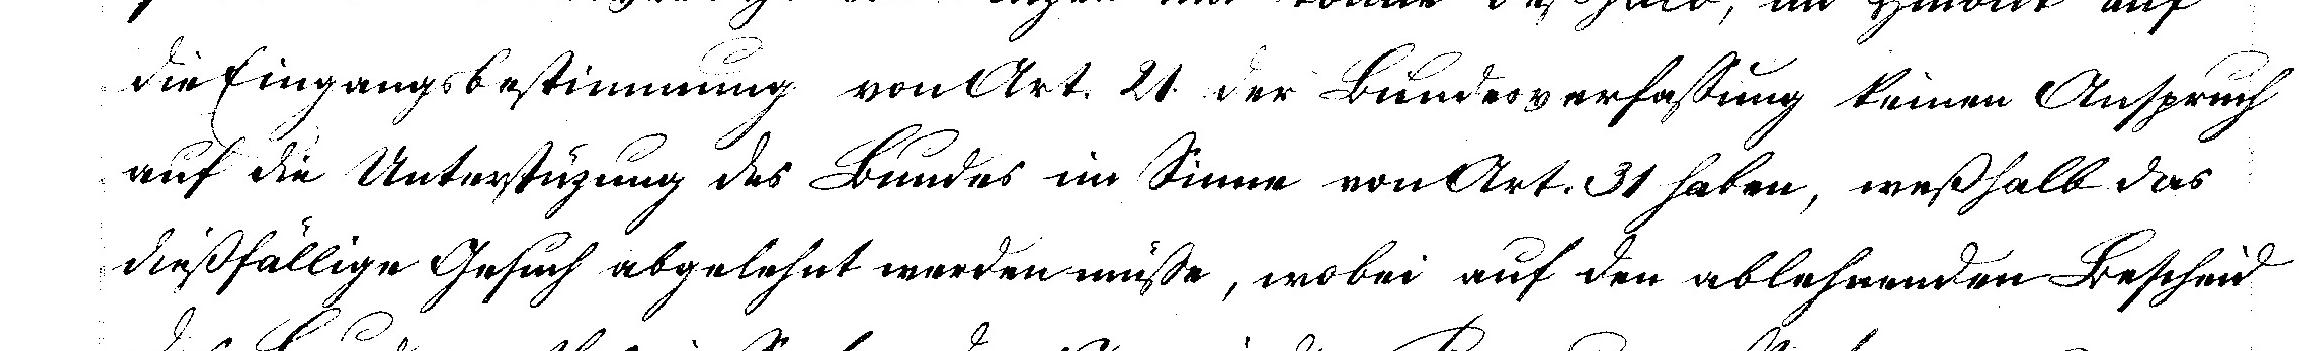 deßhalb, im Hinblik auf
die Eingangsbestimmung von Art. 21 der Bundesverfaßung keinen Anspruch
auf die Unterstüzung des Bundes im Sinne von Art. 31 haben, weßhalb das
dießfällige Gesuch abgelehnt werden müße, wobei auf den ablehnenden Bescheid